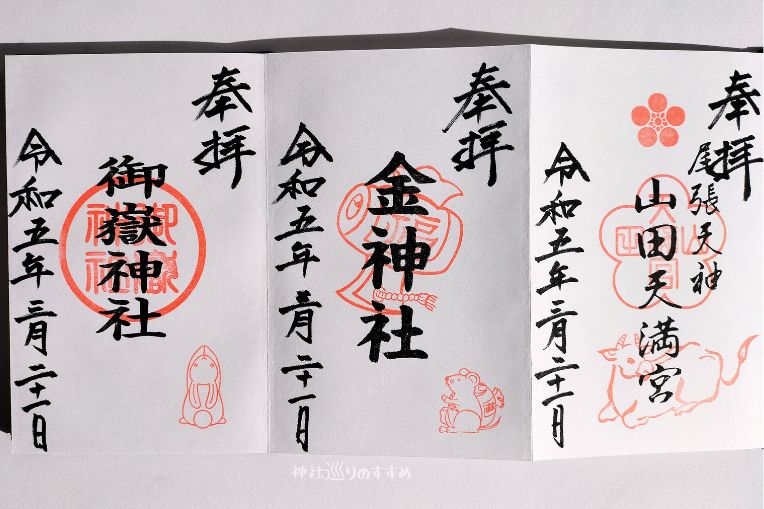 奉拝
尾張天神
山田天満宮
令和五年三月二十一日
奉拝
金神社
令和五年三月二十一日
福
奉拝
御嶽神社
令和五年三月二十一日
神社巡りのすすめ